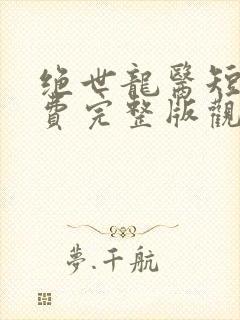 绝世龍醫短
費完整版觀
夢.千航